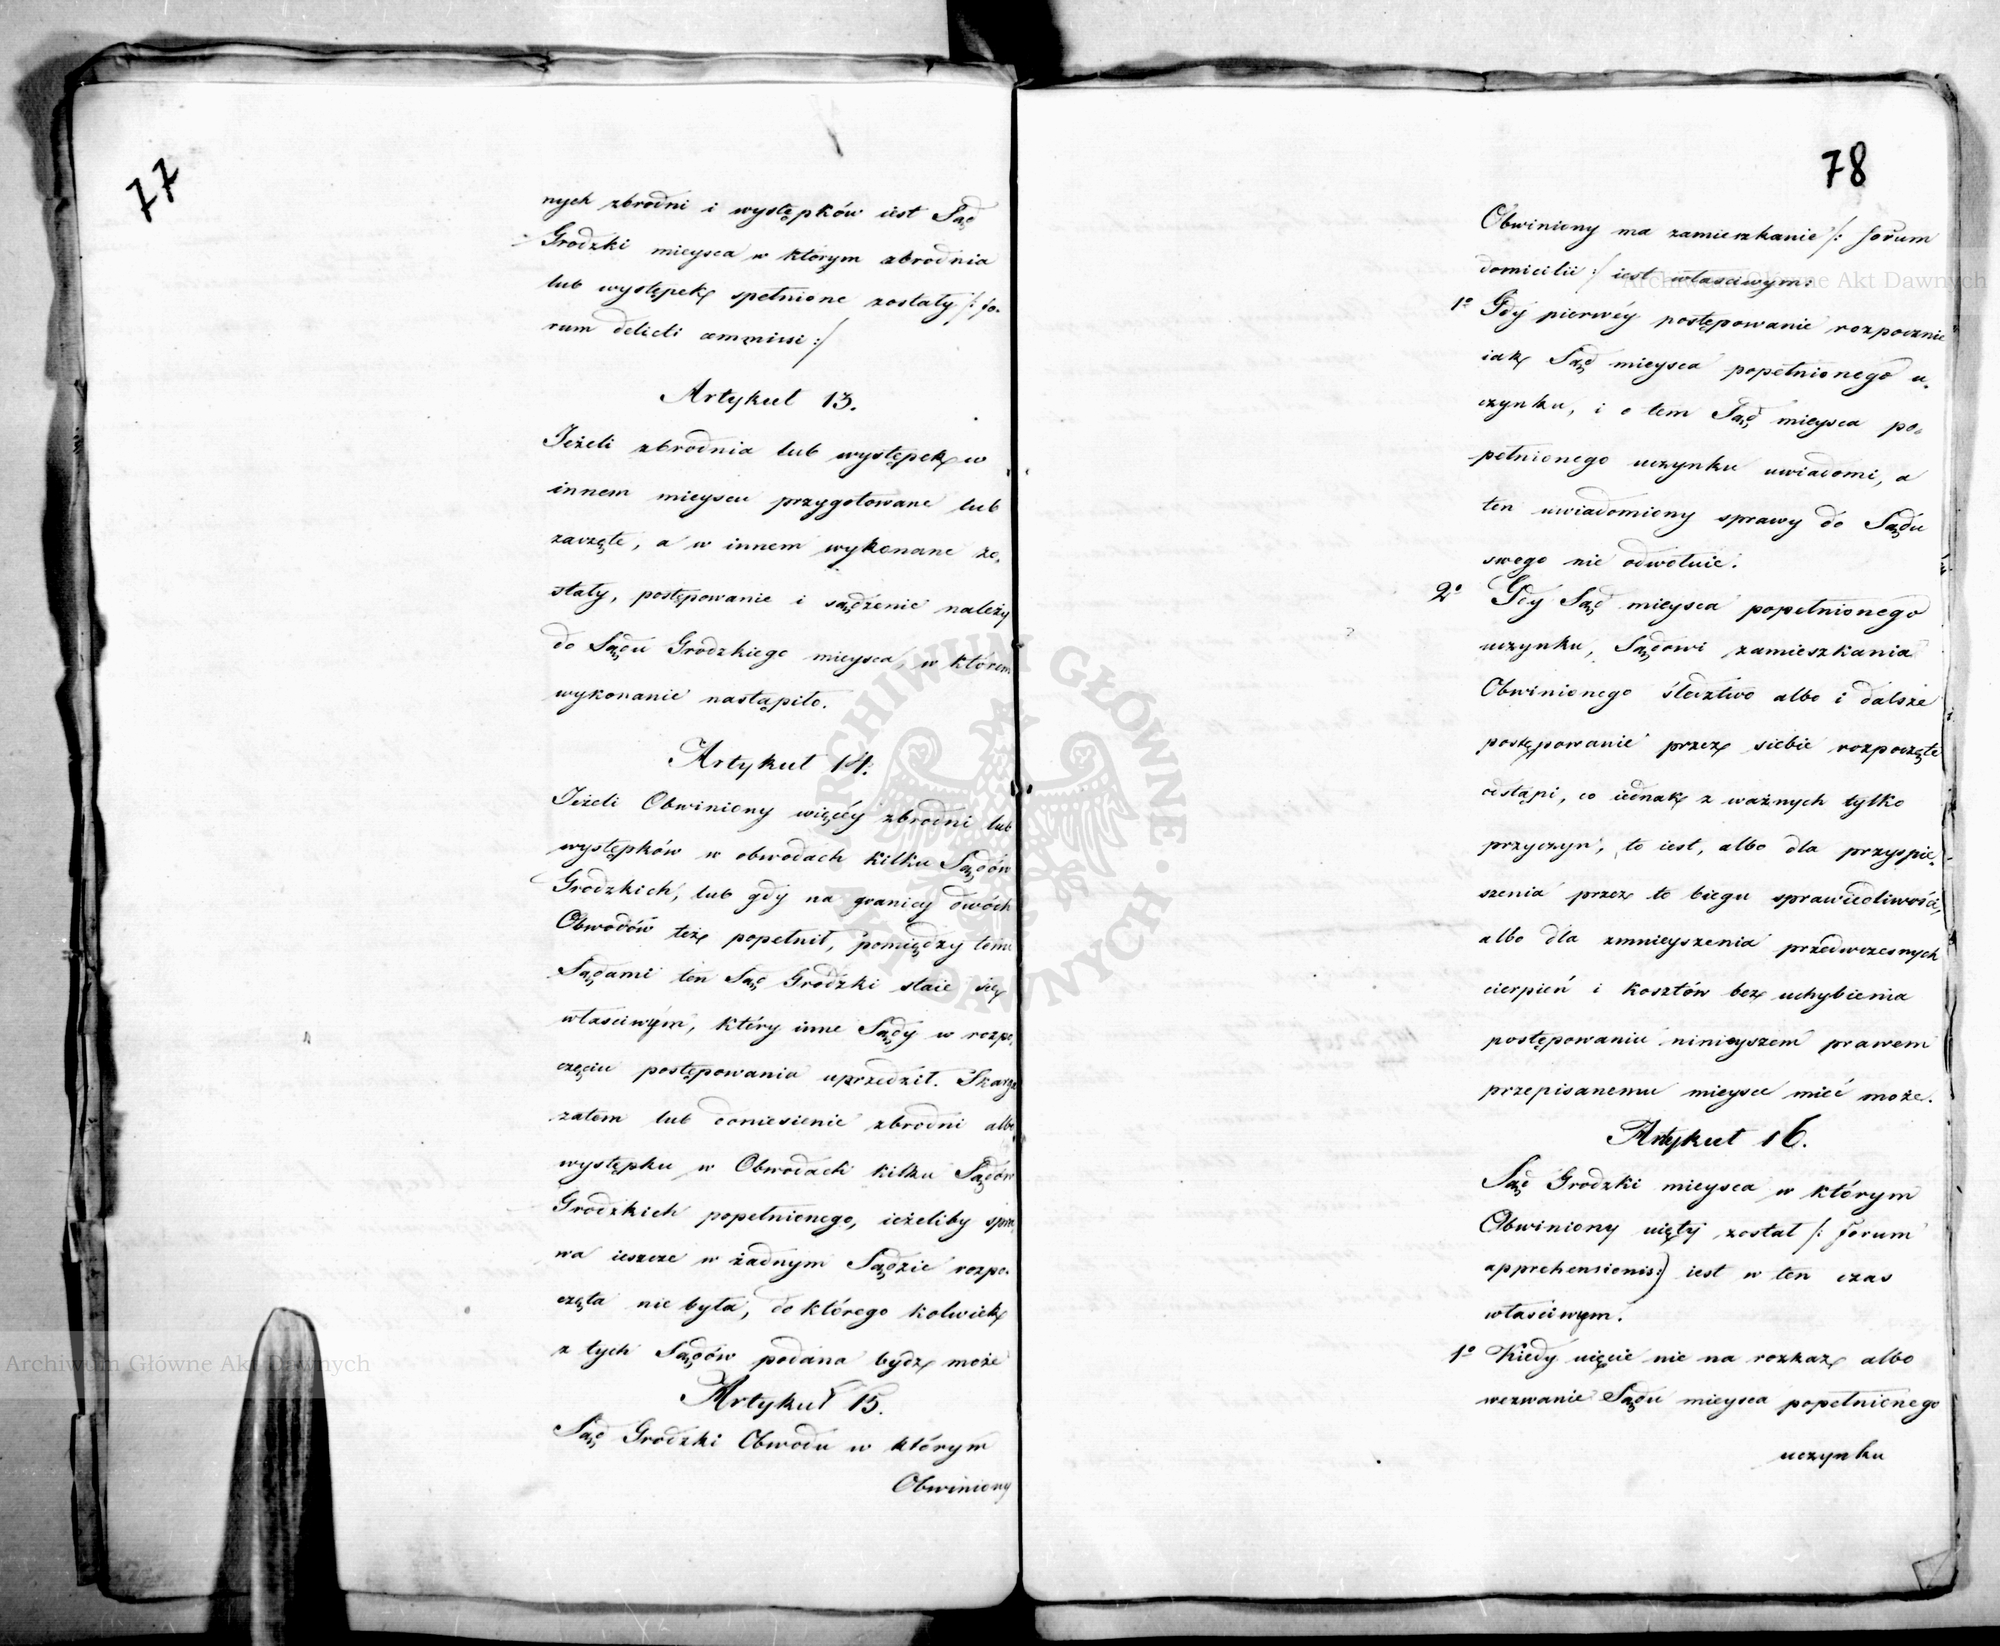 77
nych zbrodni i występków iest Sąd
Grodzki mieysca w którym zbrodnia
lub występek spełnione zostały /: fo-
rum delicti commissi :/
Artykuł 13.
Jeżeli zbrodnia lub występek w
innem mieyscu przygotowane lub
zaczęte, a w innem wykonane zo-
stały, postępowanie i sądzenie należy
do Sądu Grodzkiego mieysca, w którem
wykonanie nastąpiło.
Artykuł 14.
Jeżeli Obwiniony więcéy zbrodni lub
występków w obwodach kilku Sądów
Grodzkich, lub gdy na granicy dwóch
Obwodów też popełnił, pomiędzy temi
Sądami ten Sąd Grodzki staie się
właściwym, który inne Sądy w rozpo-
częciu postępowania uprzedził. Skarga
zatem lub doniesienie zbrodni albo
występku w Obwodach kilku Sądów
Grodzkich popełnionego, ieżeliby spra-
wa ieszcze w żadnym Sądzie rozpo-
częta nie była, do którego kolwiek
z tych Sądów podana bydź może
Artykuł 15.
Sąd Grodzki Obwodu w którym
Obwiniony
78
Obwiniony ma zamieszkanie /: forum
domicilii :/ iest właściwym:
1º Gdy pierwéy postępowanie rozpocznie
iak Sąd mieysca popełnionego u-
czynku, i o tem Sąd mieysca po-
pełnionego uczynku uwiadomi, a
ten uwiadomiony sprawy do Sądu
swego nie odwołuie.
2º Gdy Sąd mieysca popełnionego
uczynku, Sądowi zamieszkania
Obwinionego śledztwo albo i dalsze
postępowanie przez siebie rozpoczęte
odstąpi, co iednak z ważnych tylko
przyczyn, to iest, albo dla przyspie-
szenia przez to biegu sprawiedliwości,
albo dla zmnieyszenia przedwczesnych
cierpień i kosztów bez uchybienia
postępowaniu ninieyszem prawem
przepisanemu mieysce mieć może.
Artykuł 16.
Sąd Grodzki mieysca w którym
Obwiniony uięty został /: forum
apprehensionis:) iest w ten czas
właściwym.
1º Kiedy uięcie nie na rozkaz albo
wezwanie Sądu mieysca popełnionego
uczynku
ARCHIWUM GŁÓWNE · AKT DAWNYCH ·
Archiwum Główne Akt Dawnych
Archiwum Główne Akt Dawnych